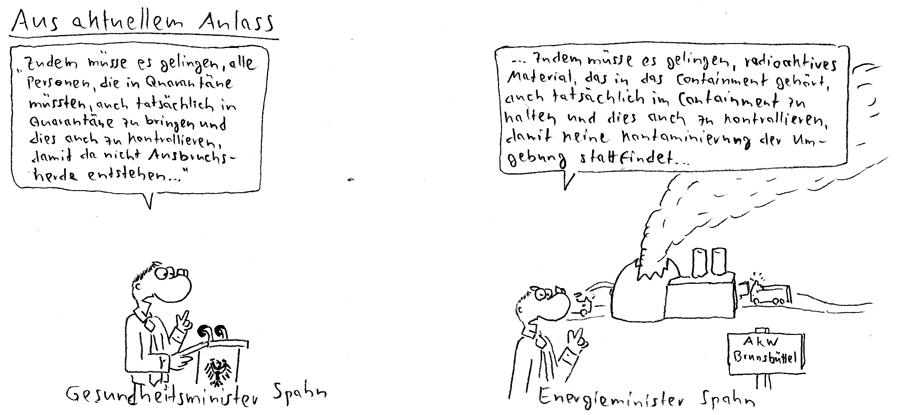 Aus aktuellem Anlass
„Zudem müsse es gelingen, alle
Personen, die in Quarantäne
müssten, auch tatsächlich in
Quarantäne zu bringen und
dies auch zu kontrollieren,
damit da nicht Ausbruchs-
herde entstehen..."
Gesundheitsminister Spahn
... Zudem müsse es gelingen, radioaktives
Material, das in das Containment gehört,
auch tatsächlich im Containment zu
halten und dies auch zu kontrollieren,
damit keine Kontaminierung der Um-
gebung stattfindet...
AKW
Brunsbüttel
Energieminister Spahn